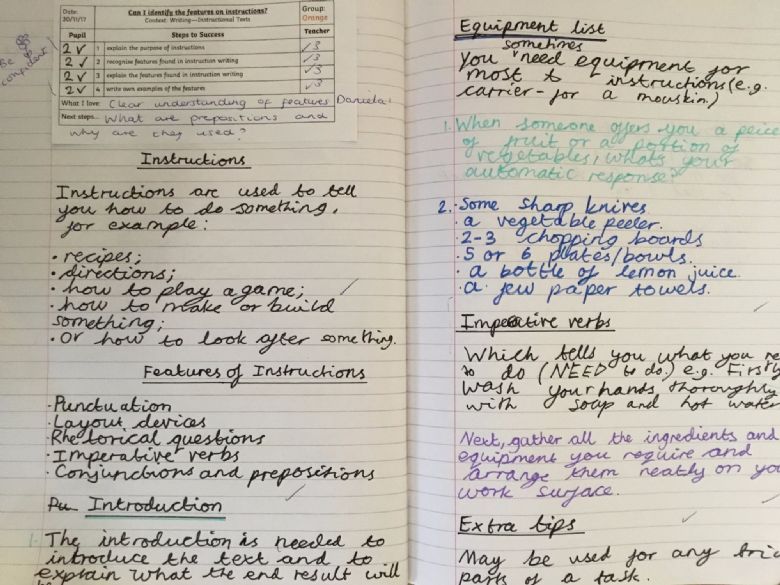 Date: 30/11/17
Can I identify the features on instructions?
Context: Writing—Instructional Texts
Group: Orange
Pupil Steps to Success Teacher
2 ✓ 1 explain the purpose of instructions ✓3
2 ✓ 2 recognise features found in instruction writing ✓3
2 ✓ 3 explain the features found in instruction writing ✓3
2 ✓ 4 write own examples of the features ✓3
Be
confident
What I love: Clear understanding of features Daniela!
Next steps... What are prepositions and
why are they used?
Instructions
Instructions are used to tell
you how to do something,
for example:
• recipes;
• directions;
• how to play a game;
• how to make or build
something;
• Or how to look after something.
Features of Instructions
· Punctuation
· Layout devices
· Rhetorical questions
· Imperative verbs
· Conjunctions and prepositions
Introduction
1. The introduction is needed to
introduce the text and to
explain what the end result will
Equipment list
sometimes
You need equipment for
most instructions (e.g.
carrier - for a mouskin.)
1. When someone offers you a peice
of fruit or a portion of
vegetables, whats your
automatic response?
2. · Some sharp knives
· a vegetable peeler.
· 2-3 chopping boards
· 5 or 6 plates/bowls.
· a bottle of lemon juice.
· a few paper towels.
Imperative verbs
Which tells you what you
to do (NEED to do.) e.g. Firstly
wash your hands thoroughly
with soap and hot water
Next, gather all the ingredients and
equipment you require and
arrange them neatly on
work surface.
Extra tips
May be used for any
parts of a task.